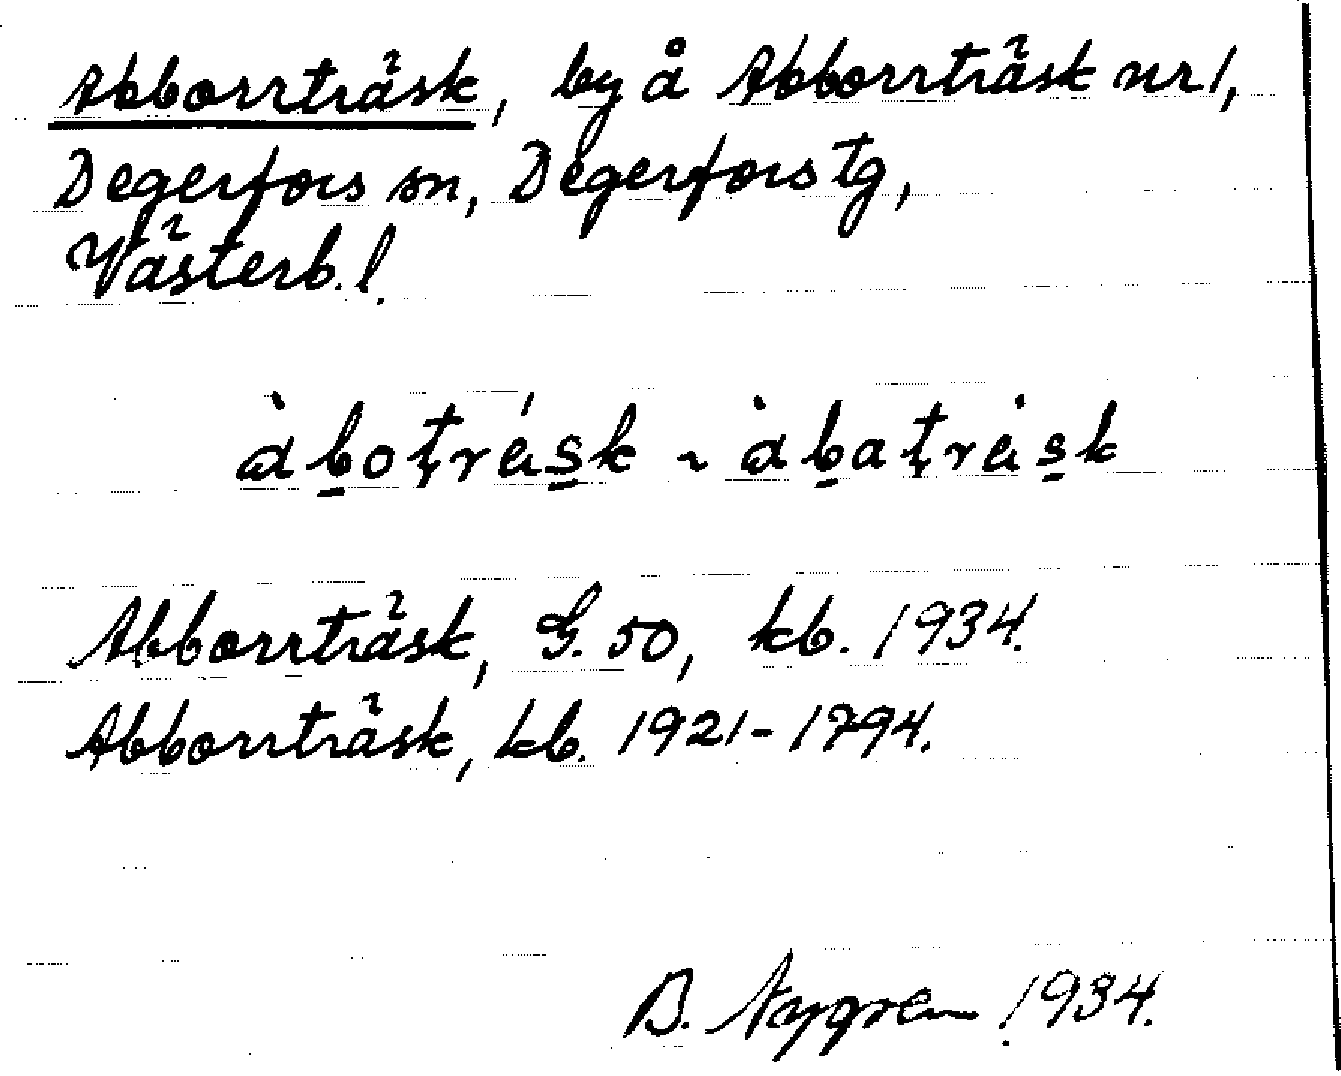 Abborrträsk, by å Abborrträsk nr 1,
Degerfors sn, Degerfors tg,
Västerb. l.
àb̠oƫrás̠k ~ àb̠aƫrȧs̠k
Abborrträsk, G. 50, kb. 1934.
Abborrträsk, kb. 1921-1794.
B. Nygren 1934.